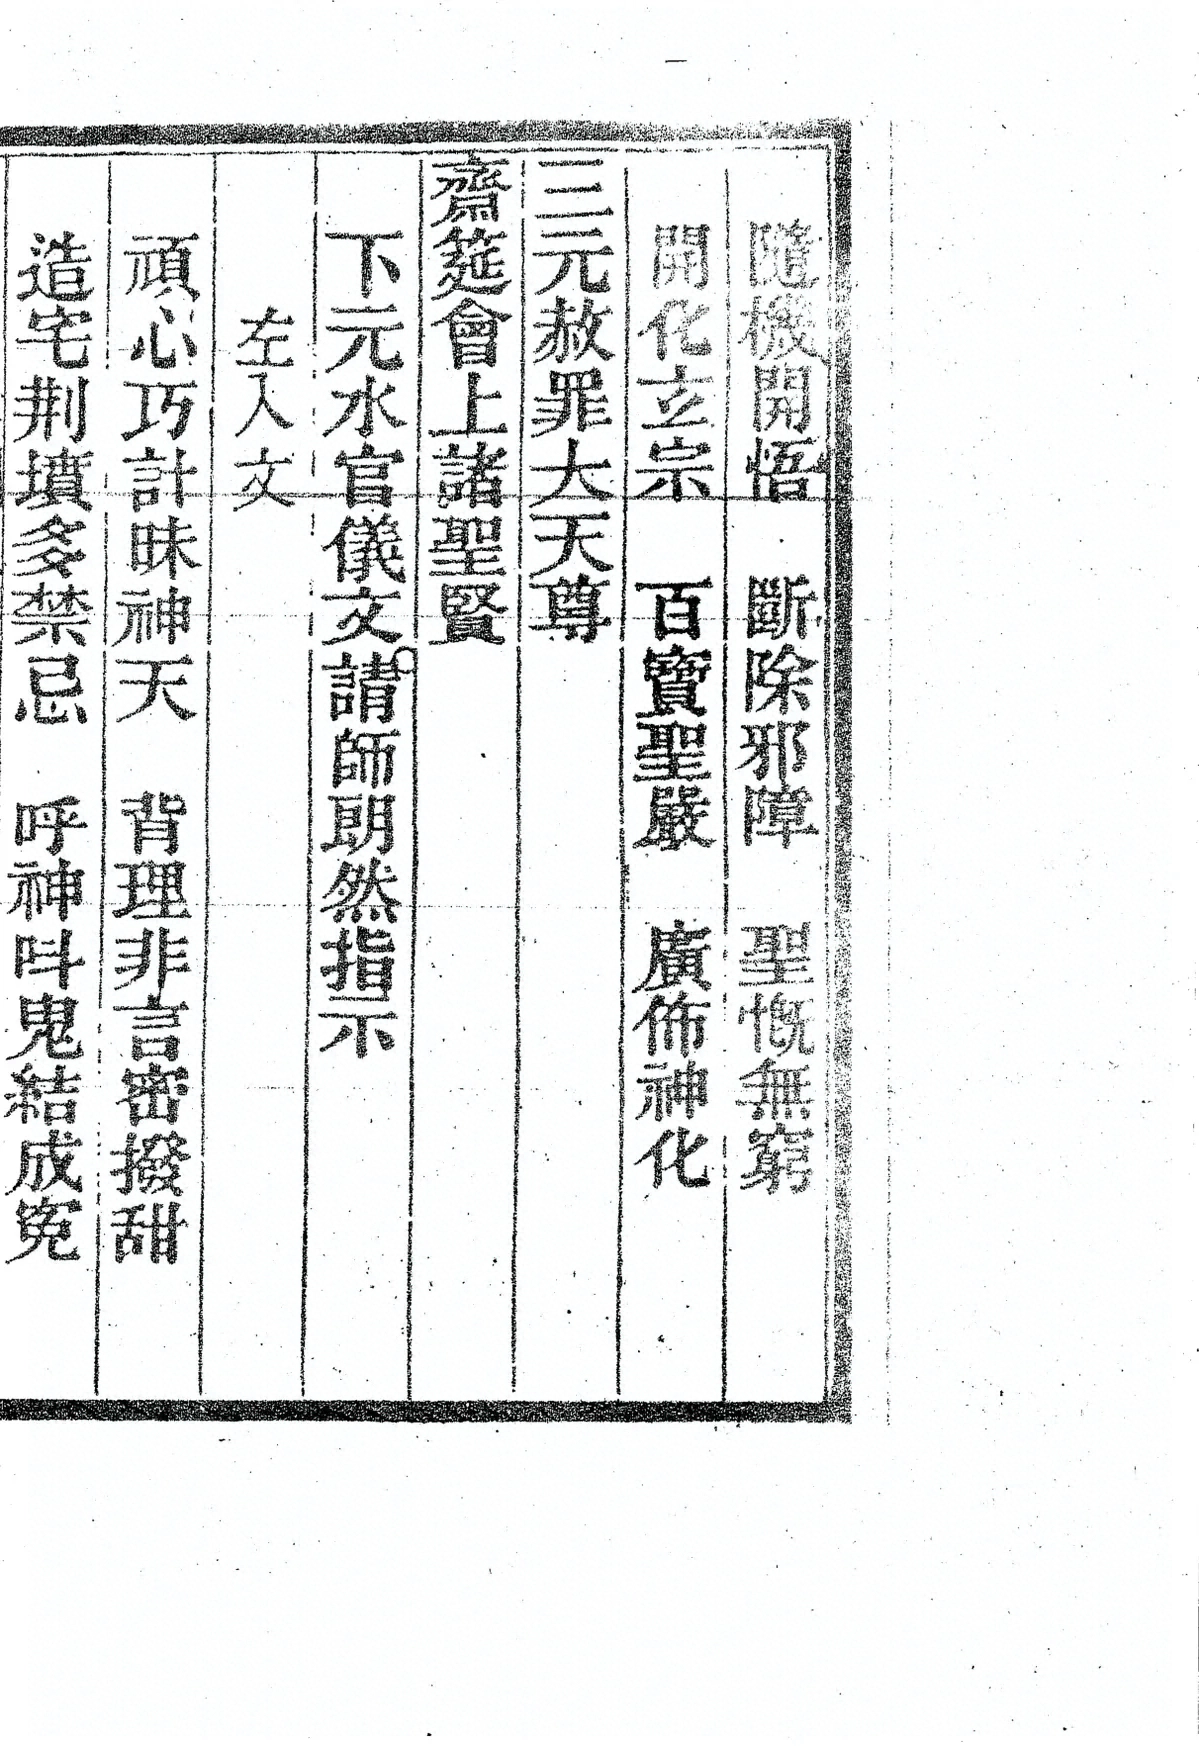 隨機開悟　斷除邪障　聖慨無窮
開化立宗　百寶聖嚴　廣佈神化
三元赦罪大天尊
齋筵會上諸聖賢
下元水官儀文請師朗然指示
左入文
頑心巧計昧神天　背理非言密撥甜
造宅荆墳多禁忌　呼神呌鬼結成寃